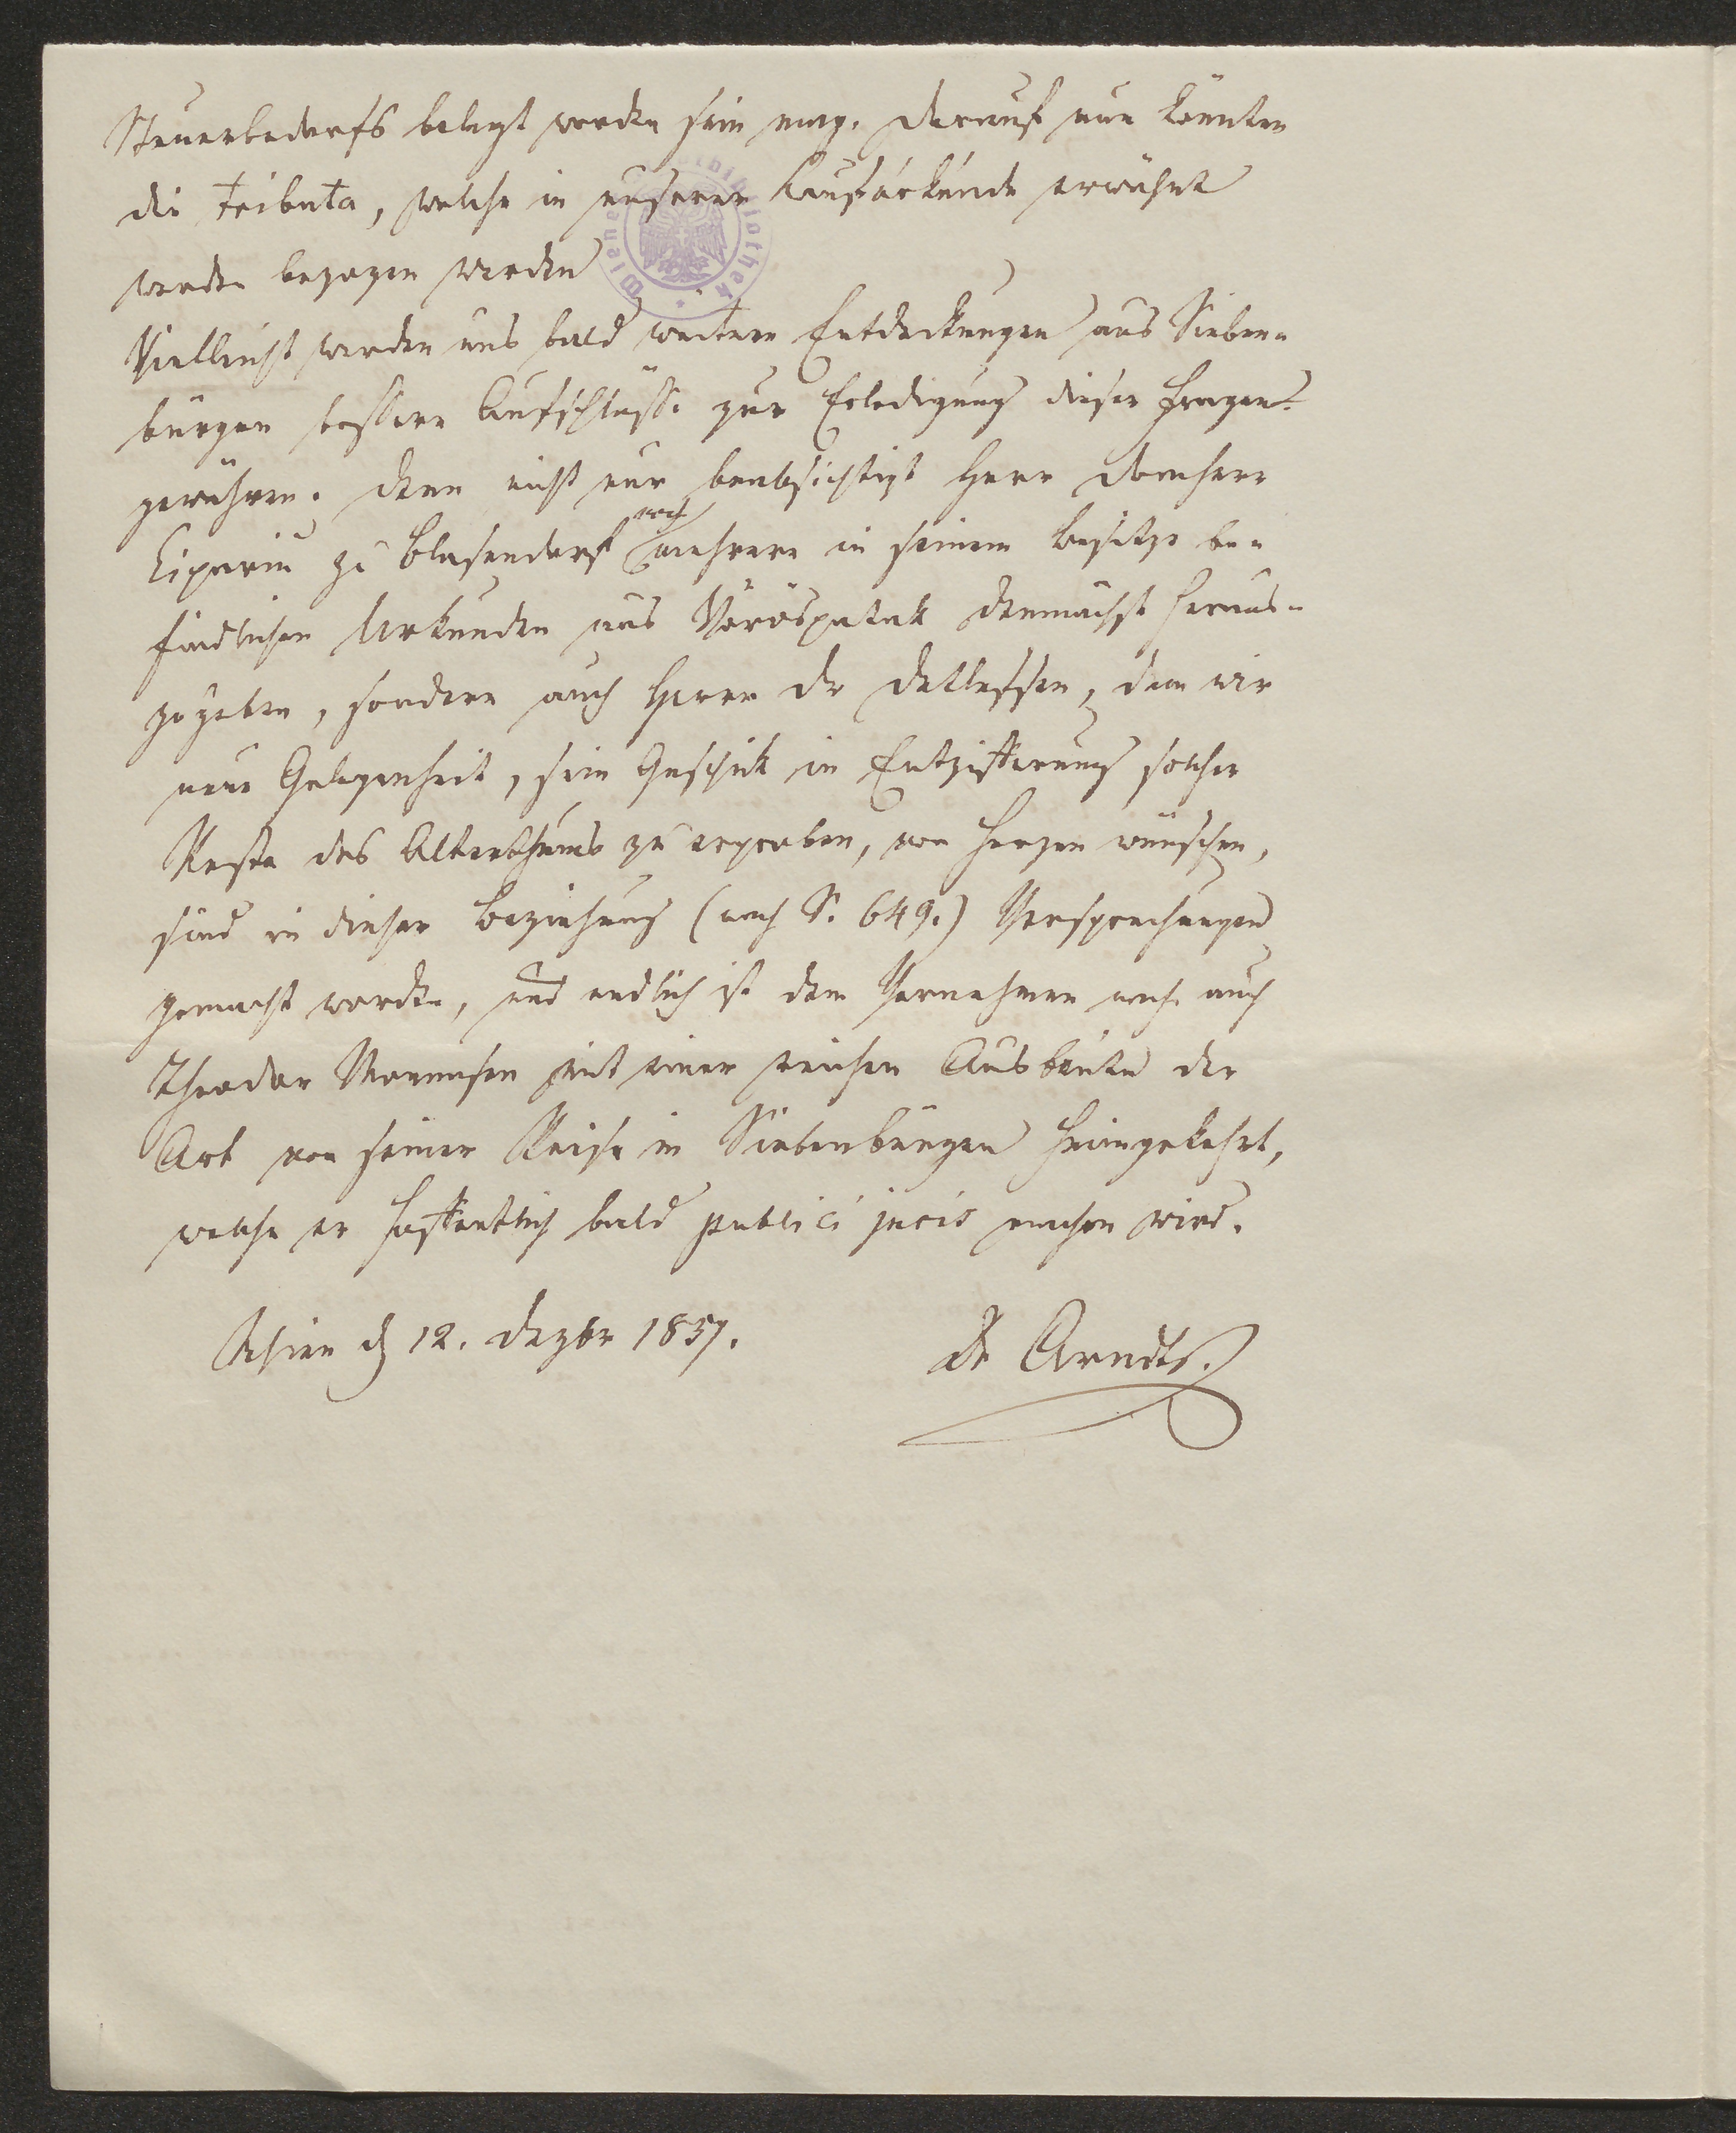 Steuerbedarfs belegt worden sein mag. Darauf nun könnten
die tributa, welche in unserer Kaufurkunde erwähnt
werden bezogen werden
Vielleicht werden uns bald weitere Entdeckungen aus Sieben-
bürgen bessere Aufschlüsse zur Erledigung dieser Fragen
gewähren. Denn nicht nur beabsichtigt Herr Domherr
noch
Cipariu zu Blasendorf mehrere in seinem Besitze be-
findlichen Urkunden aus Vöröspatak demnächst heraus-
zugeben, sondern auch Herrn Dr Detlefsen, dem wir
neue Gelegenheit, sein Geschick in Entzifferung solcher
Reste des Alterthums zu erproben, von Herzen wünschen,
sind in dieser Beziehung (nach S. 649.) Versprechungen
gemacht worden, und endlich ist dem Vernehmen nach auch
Theodor Mommsen mit einer reichen Ausbeute der
Art von seiner Reise in Siebenbürgen heimgekehrt,
welche er hoffentlich bald publici juris machen wird.
Wien d 12. Dezbr 1857.
Dr Arndts.